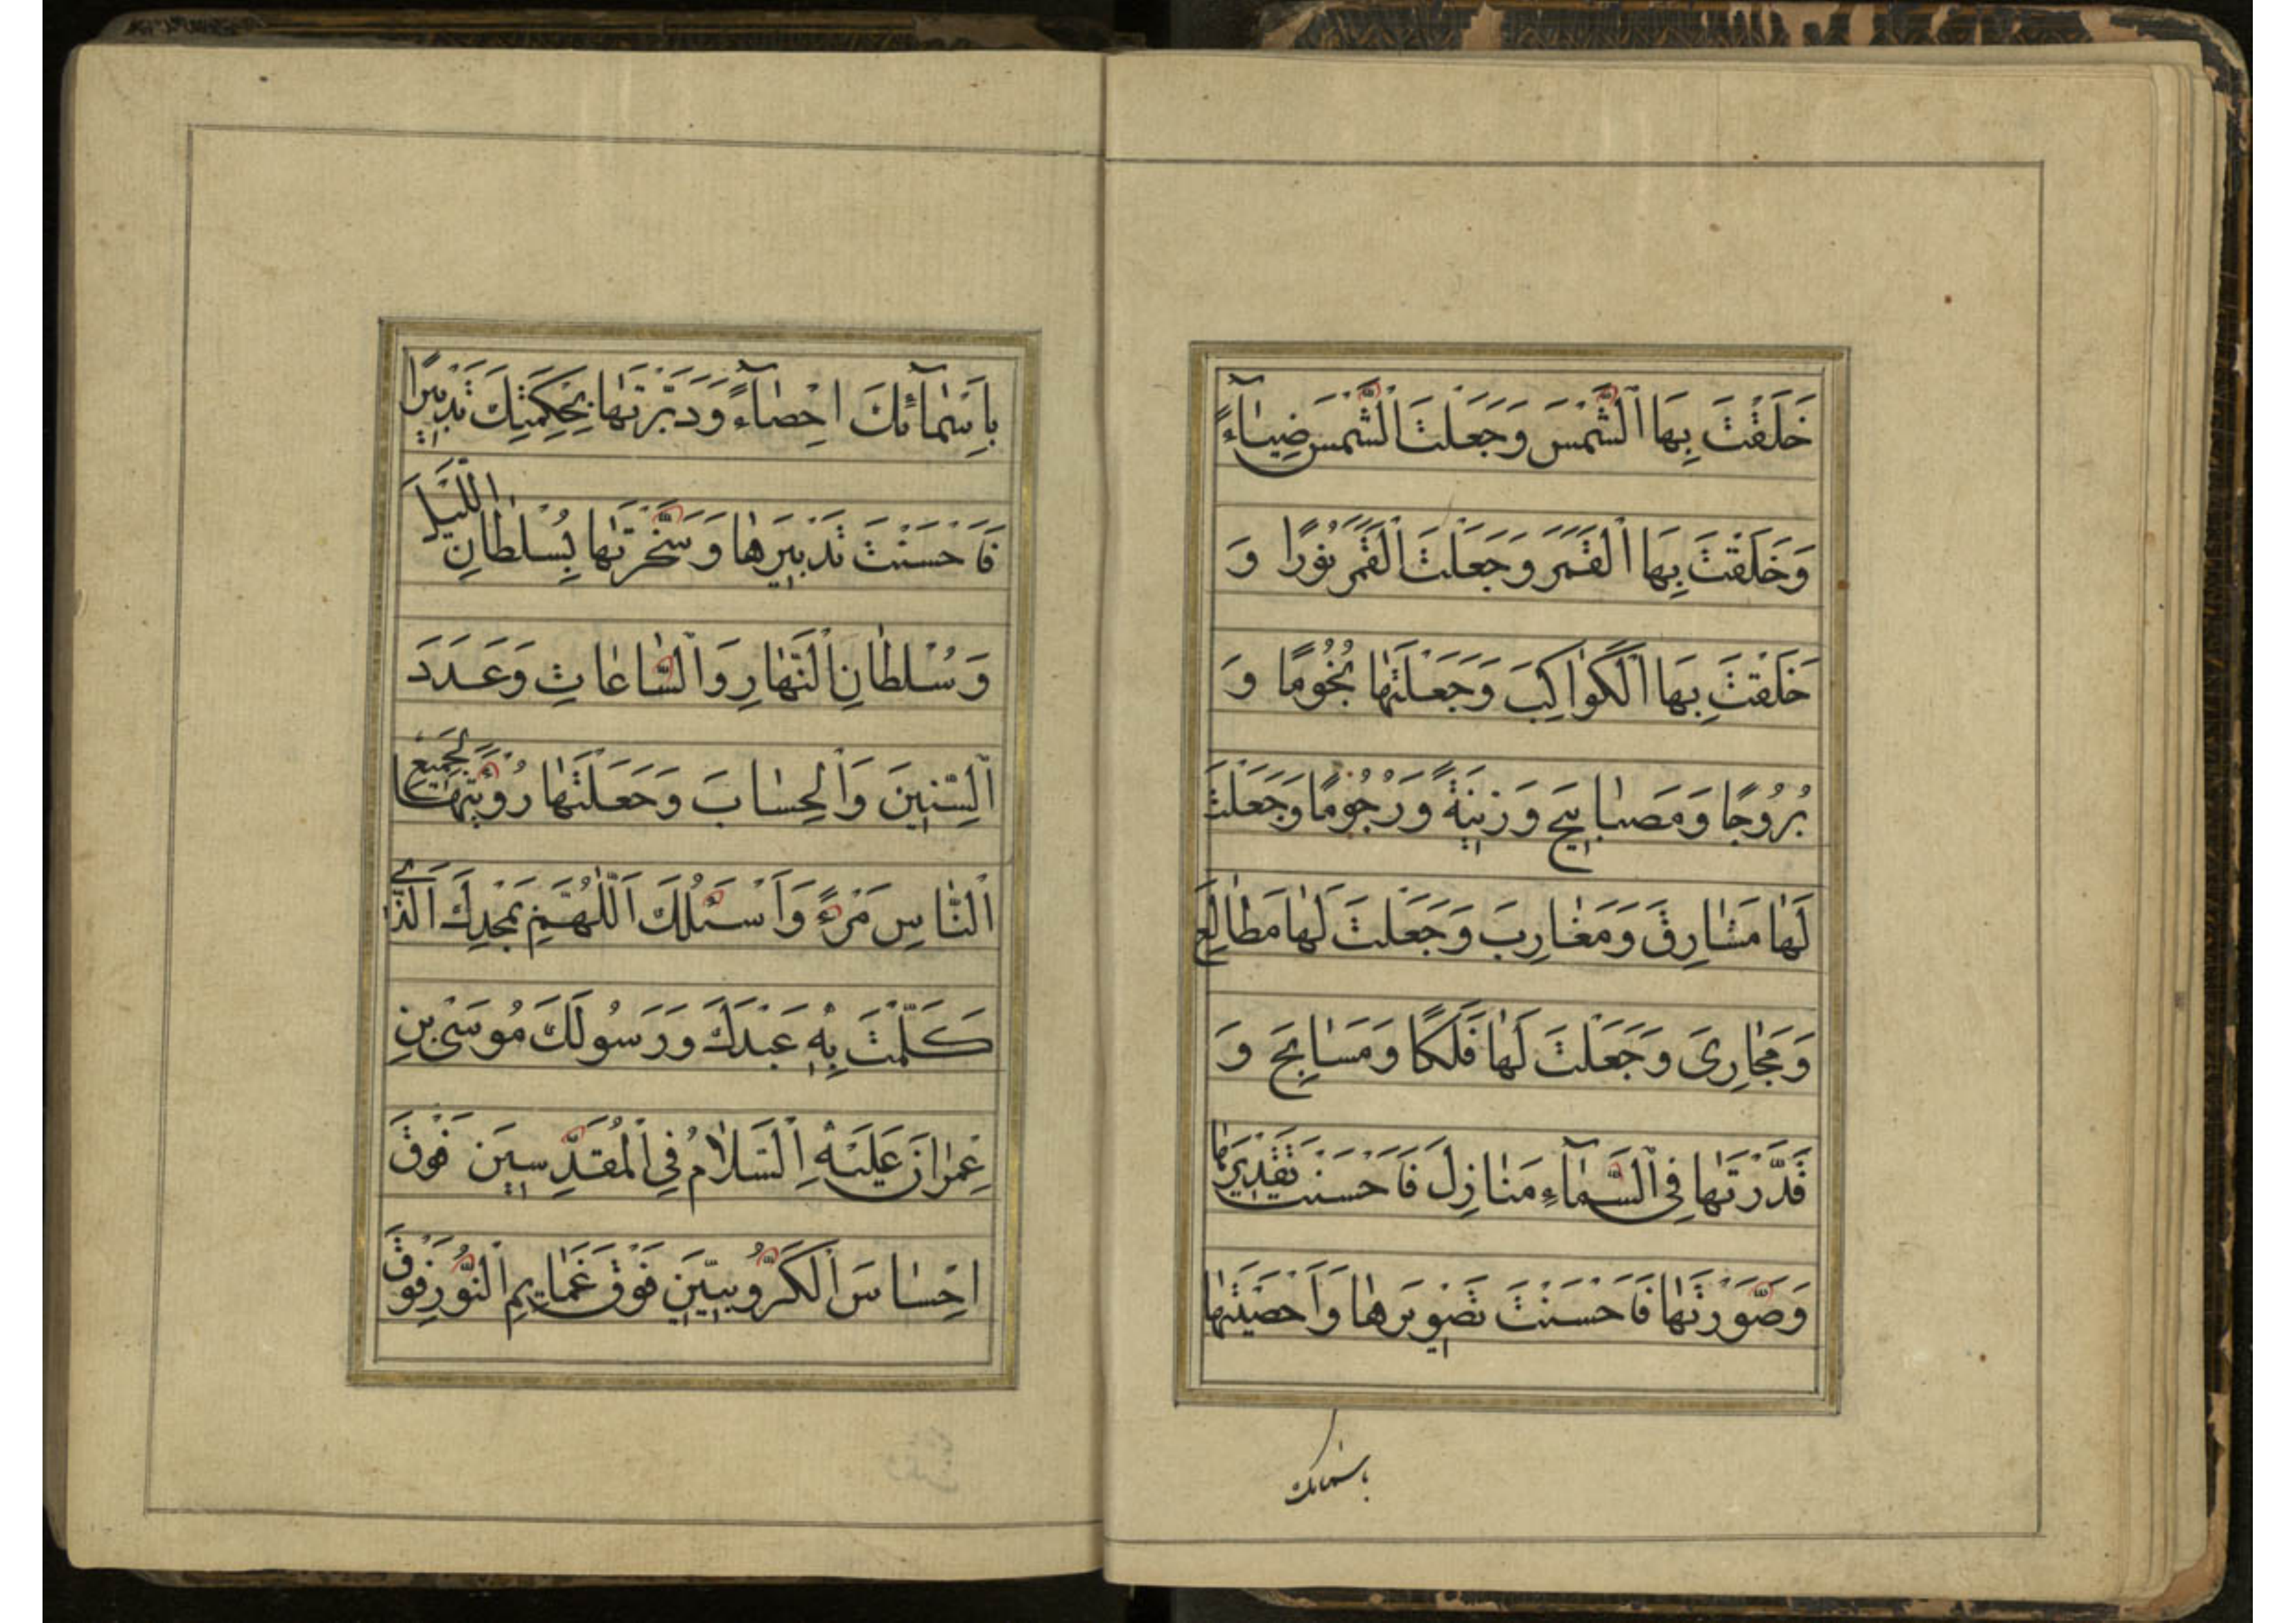 خَلَقْتَ بِهَا الشَّمْسَ وَجَعَلْتَ الشَّمْسَ ضِيَاءً
وَخَلَقْتَ بِهَا الْقَمَرَ وَجَعَلْتَ الْقَمَرَ نُورًا وَ
خَلَقْتَ بِهَا الْكَوَاكِبَ وَجَعَلْتَهَا نُجُومًا وَ
بُرُوجًا وَمَصَابِيحَ وَزِينَةً وَرُجُومًا وَجَعَلْتَ
لَهَا مَشَارِقَ وَمَغَارِبَ وَجَعَلْتَ لَهَا مَطَالِعَ
وَمَجَارِيَ وَجَعَلْتَ لَهَا فَلَكًا وَمَسَابِحَ وَ
قَدَّرْتَهَا فِي السَّمَاءِ مَنَازِلَ فَاَحْسَنْتَ تَقْدِيرَهَا
وَصَوَّرْتَهَا فَاَحْسَنْتَ تَصْوِيرَهَا وَاَحْصَيْتَهَا
باسمائك
بِاَسْمَائِكَ اِحْصَاءً وَدَبَّرْتَهَا بِحِكْمَتِكَ تَدْبِيرًا
فَاَحْسَنْتَ تَدْبِيرَهَا وَسَخَّرْتَهَا بِسُلْطَانِ اللَّيْلِ
وَسُلْطَانِ النَّهَارِ وَالسَّاعَاتِ وَعَدَدَ
السِّنِينَ وَالْحِسَابَ وَجَعَلْتَ رُؤْيَتَهَا لِجَمِيعِ
النَّاسِ مَرْءً وَاَسْئَلُكَ اَللّٰهُمَّ بِمَجْدِكَ الَّذِي
كَلَّمْتَ بِهِ عَبْدَكَ وَرَسُولَكَ مُوسَى بْنِ
عِمْرَانَ عَلَيْهِ السَّلَامُ فِي الْمُقَدَّسِينَ فَوْقَ
اِحْسَاسَ الْكَرُّوبِيِّينَ فَوْقَ غَمَايِمِ النُّورِ فَوْقَ